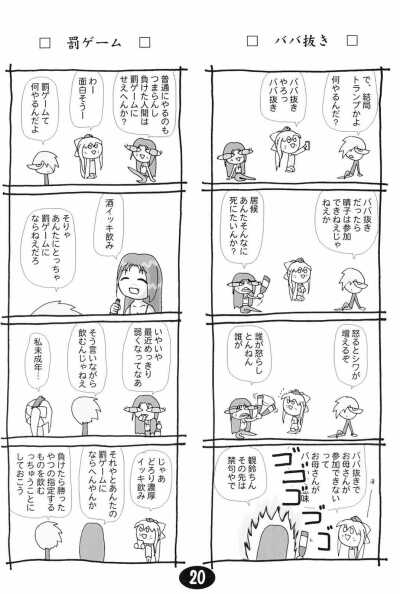 □ ババ抜き □
で、結局
トランプかよ
何やるんだ?
ババ抜き
やろっ
ババ抜き
ババ抜き
だったら
晴子は参加
できねえじゃ
ねえか
居候
あんたそんなに
死にたいんか?
怒るとシワが
増えるぞ
誰が怒らし
とんねん
誰が
ババ抜きで
お母さんが
参加できない
って
お母さんが
バ
味
ゴゴゴゴ
観鈴ちん
その先は
禁句やで
□ 罰ゲーム □
普通にやるのも
つまらんし
負けた人間は
罰ゲームに
せえへんか?
わー
面白そうー
罰ゲームて
何やるんだよ
酒イッキ飲み
そりゃ
あんたにとっちゃ
罰ゲームに
ならねえだろ
いやいや
最近めっきり
弱くなってなあ
そう言いながら
飲むんじゃねえ
私未成年…
じゃあ
どろり濃厚
イッキ飲み
それやとあんたの
罰ゲームに
ならへんやんか
負けたら勝った
やつの指定する
ものを飲む
っちゅうことに
しておこう
20